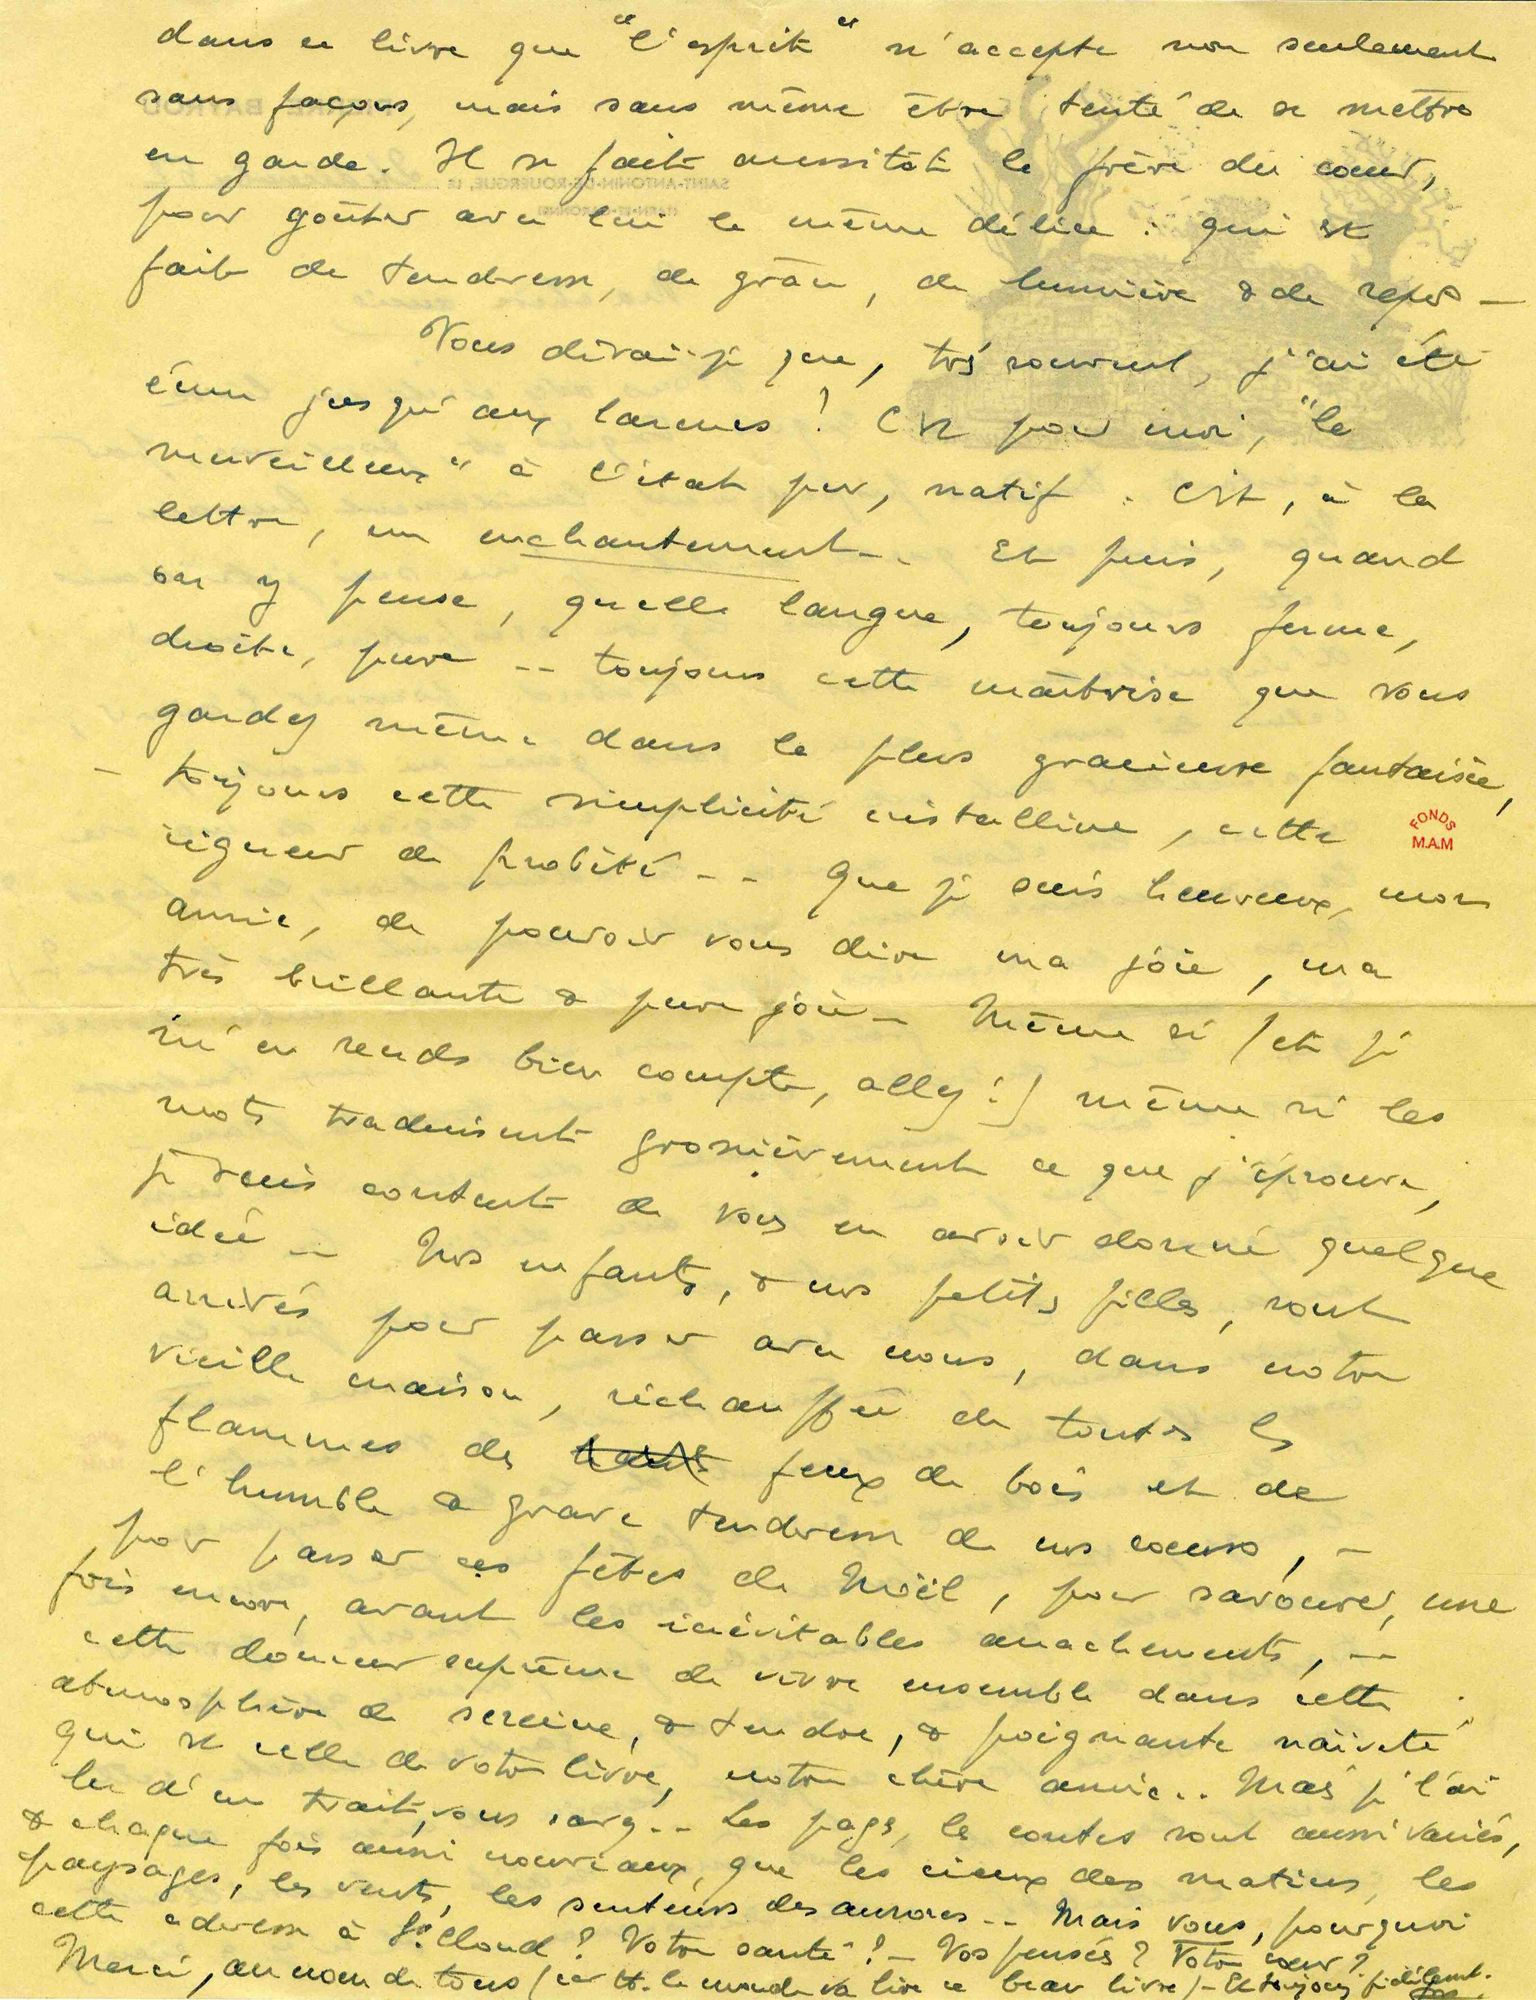 dans ce livre que "l'esprit" n'accepte non seulement
sans façons, mais sans même être tenté de se mettre
en garde. Il se fait aussitôt le frère du cœur,
pour goûter avec lui le même délice : qui est
fait de tendresse, de grâce, de lumière & de repos —
Vous dirai-je que, très souvent, j'ai été
ému jusqu'aux larmes ! C'est pour moi, "le
merveilleux" à l'état pur, natif. C'est, à la
lettre, un enchantement.. Et puis, quand
on y pense, quelle langue, toujours ferme,
droite, pure -- toujours cette maîtrise que vous
gardez même dans la plus gracieuse fantaisie,
— toujours cette simplicité cristalline, cette
FONDS
M.A.M
rigueur de probité -- Que je suis heureux, mon
amie, de pouvoir vous dire ma joie, ma
très brillante & pure joie — Même si (et je
m'en rends bien compte, allez !) même si les
mots traduisent grossièrement ce que j'éprouve,
je suis content de vous en avoir donné quelque
idée — Nos enfants, & nos petites filles, sont
arrivés pour passer avec nous, dans notre
vieille maison, réchauffée de toutes les
flammes des feux de bois et de
l'humble & grave tendresse de nos cœurs, —
pour passer ces fêtes de Noël, pour savourer, une
fois encore, avant les inévitables arrachements, —
cette douceur suprême de vivre ensemble dans cette
atmosphère de sereine, & tendre, & poignante naïveté
qui est celle de votre livre, notre chère amie.. Mais je l'ai
lu d'un trait, vous savez -- Les pages, les contes sont aussi variés,
& chaque fois aussi nouveaux, que les cieux des matins, les
paysages, les vents, les senteurs des aurores -- Mais vous, pourquoi
cette adresse à St. Cloud ? Votre santé ? — Vos pensées ? Votre cœur ?
Merci, au nom de tous (car tt. le monde va lire ce beau livre) — Et toujours fidèlement.